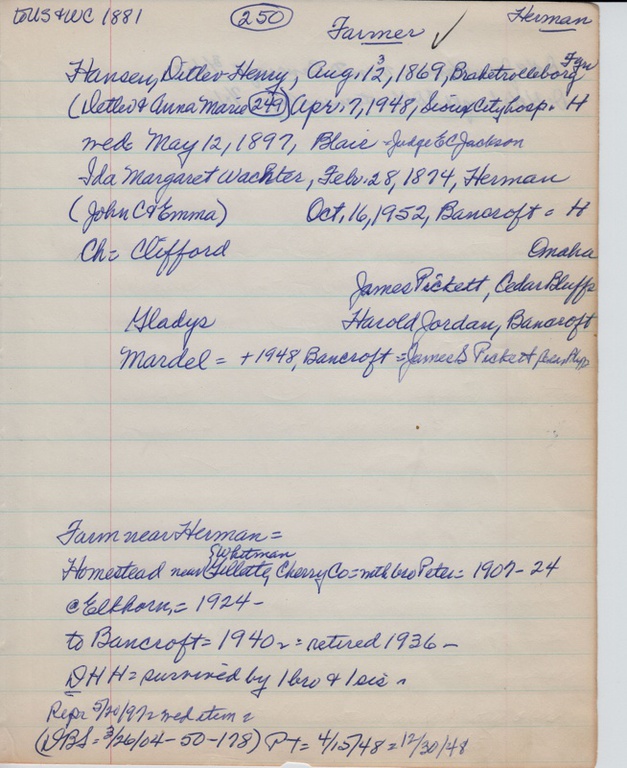 to US & WC 1881 250 Farmer ✓ Herman
Hansen, Detlev Henry, Aug. 12, 1869, Braketrolleborg Fyn
3
(Detlev & Anna Marie 249) Apr. 7, 1948, Sioux City hosp. = H
wed = May 12, 1897, Blair = Judge E C Jackson
Ida Margaret Wachter, Feb. 28, 1874, Herman
(John C & Emma) Oct. 16, 1952, Bancroft = H
Ch = Clifford Omaha
James Pickett, Cedar Bluffs
Gladys Harold Jordan, Bancroft
Mardel = + 1948, Bancroft = James S Pickett
Farm near Herman =
{Whitman
Homestead near Cherry Co = with bro Peter = 1907 - 24
@ Elkhorn, = 1924 -
to Bancroft = 1940 = retired 1936 -
DHH = survived by 1 bro & 1 sis
Repr 5/20/97 = wed item =
(DBS = 3/26/04 - 50 - 178) PT = 4/15/48 = 12/30/48